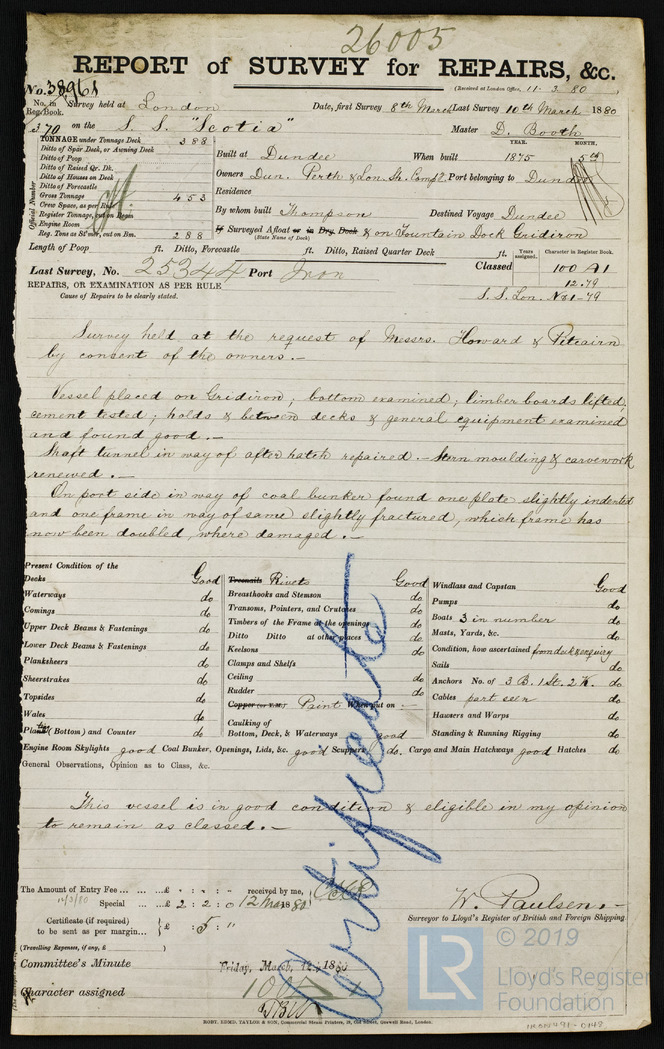 26005
REPORT of SURVEY for REPAIRS, &c.
(Received at London Office, 11. 3. 80)
No. 38961
No. in Reg. Book. Survey held at London Date, first Survey 8th March Last Survey 10th March 1880
370 on the S. S. "Scotia" Master D. Booth
TONNAGE under Tonnage Deck 388
Ditto of Spar Deck, or Awning Deck
Ditto of Poop
Ditto of Raised Qr. Dk.
Ditto of Houses on Deck
Ditto of Forecastle
Gross Tonnage 453
Crew Space, as per Rule
Register Tonnage, cut on Begin
Engine Room
Reg. Tons as St'mr, cut on Bm. 288
Official Number
YEAR. MONTH.
Built at Dundee When built 1875 5th
Owners Dun. Perth & Lon. Sh. Compy. Port belonging to Dundee
Residence
By whom built Thompson Destined Voyage Dundee
If Surveyed Afloat or in Dry Dock & on Fountain Dock Gridiron
(State Name of Dock)
Length of Poop ft. Ditto, Forecastle ft. Ditto, Raised Quarter Deck ft.
Years assigned. Character in Register Book.
Last Survey, No. 25344 Port Iron Classed 100 A1
12.79
S. S. Lon. No 1-79
REPAIRS, OR EXAMINATION AS PER RULE
Cause of Repairs to be clearly stated.
Survey held at the request of Messrs. Howard & Pitcairn
by consent of the owners. -
Vessel placed on Gridiron; bottom examined; limber boards lifted;
cement tested; holds & between decks & general equipment examined
and found good. -
Shaft tunnel in way of after hatch repaired. - Stern moulding & carvework
renewed. -
On port side in way of coal bunker found one plate slightly indented
and one frame in way of same slightly fractured, which frame has
now been doubled, where damaged. -
Present Condition of the
Decks Good
Waterways do
Comings do
Upper Deck Beams & Fastenings do
Lower Deck Beams & Fastenings do
Planksheers do
Sheerstrakes do
Topsides do
Wales do
Plating (Bottom) and Counter do
Treenails Rivets Good
Breasthooks and Stemson do
Transoms, Pointers, and Crutches do
Timbers of the Frame at the openings do
Ditto Ditto at other places do
Keelsons do
Clamps and Shelfs do
Ceiling do
Rudder do
Copper (or Y.M.) Paint When put on -
Caulking of
Bottom, Deck, & Waterways good
Windlass and Capstan Good
Pumps do
Boats 3 in number do
Masts, Yards, &c. do
Condition, how ascertained from deck & enquiry
Sails do
Anchors No. of 3 B. 1 St. 2 K. do
Cables part seen do
Hawsers and Warps do
Standing & Running Rigging do
Engine Room Skylights good Coal Bunker, Openings, Lids, &c. good Scuppers do. Cargo and Main Hatchways good Hatches do
General Observations, Opinion as to Class, &c.
This vessel is in good condition & eligible in my opinion
to remain as classed. -
Certificate
The Amount of Entry Fee ... ... £ : : received by me,
Special ... £ 2 : 2 : 0 12 Mar 1880
Certificate (if required) to be sent as per margin... £ : 5 : "
(Travelling Expenses, if any, £ )
W. Paulsen. -
Surveyor to Lloyd's Register of British and Foreign Shipping.
Committee's Minute Friday, March 12, 1880
Character assigned 100 A 1
ROBT. EDMD. TAYLOR & SON, Commercial Steam Printers, 19, Old Street, Goswell Road, London.
LR © 2019
Lloyd's Register
Foundation